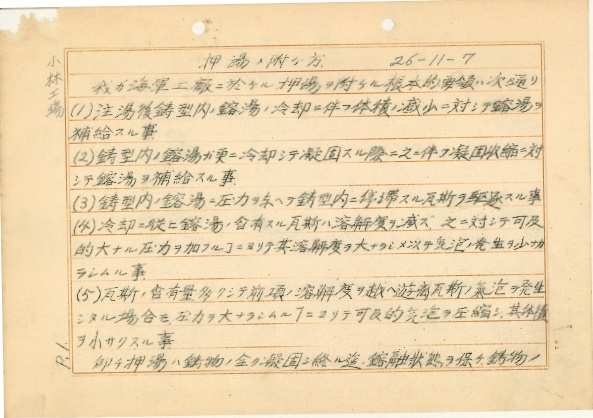 小林工場
押湯ノ附ケ方 26-11-7
我ガ海軍工廠ニ於ケル押湯ヲ附ケル根本的要領ハ次ノ通リ
(1)注湯後鋳型内ノ鎔湯ノ冷却ニ伴フ体積ノ減少ニ対シテ鎔湯ヲ
補給スル事
(2)鋳型内ノ鎔湯ガ更ニ冷却シテ凝固スル際ニ之ニ伴フ凝固收縮ニ対
シテ鎔湯ヲ補給スル事
(3)鋳型内ノ鎔湯ニ圧力ヲ与ヘテ鋳型内ニ停滞スル瓦斯ヲ駆逐スル事
(4)冷却ニ従ヒ鎔湯ノ含有スル瓦斯ハ溶解度ヲ減ズ 之ニ対シテ可及
的大ナル圧力ヲ加フルヿニヨリテ其溶解度ヲ大ナラシメ以テ気泡ノ発生ヲ小ナカ
ラシムル事
(5)瓦斯ノ含有量多クシテ前項ノ溶解度ヲ越ヘ游离瓦斯ノ氣泡ヲ発生
シタル場合モ圧力ヲ大ナラシムルヿニヨリテ可及的気泡ヲ圧縮シ其体積
ヲ小サクスル事
即チ押湯ハ鋳物ノ全ク凝固シ終ル迄 鎔融狀態ヲ保チ、鋳物ノ
P.1.